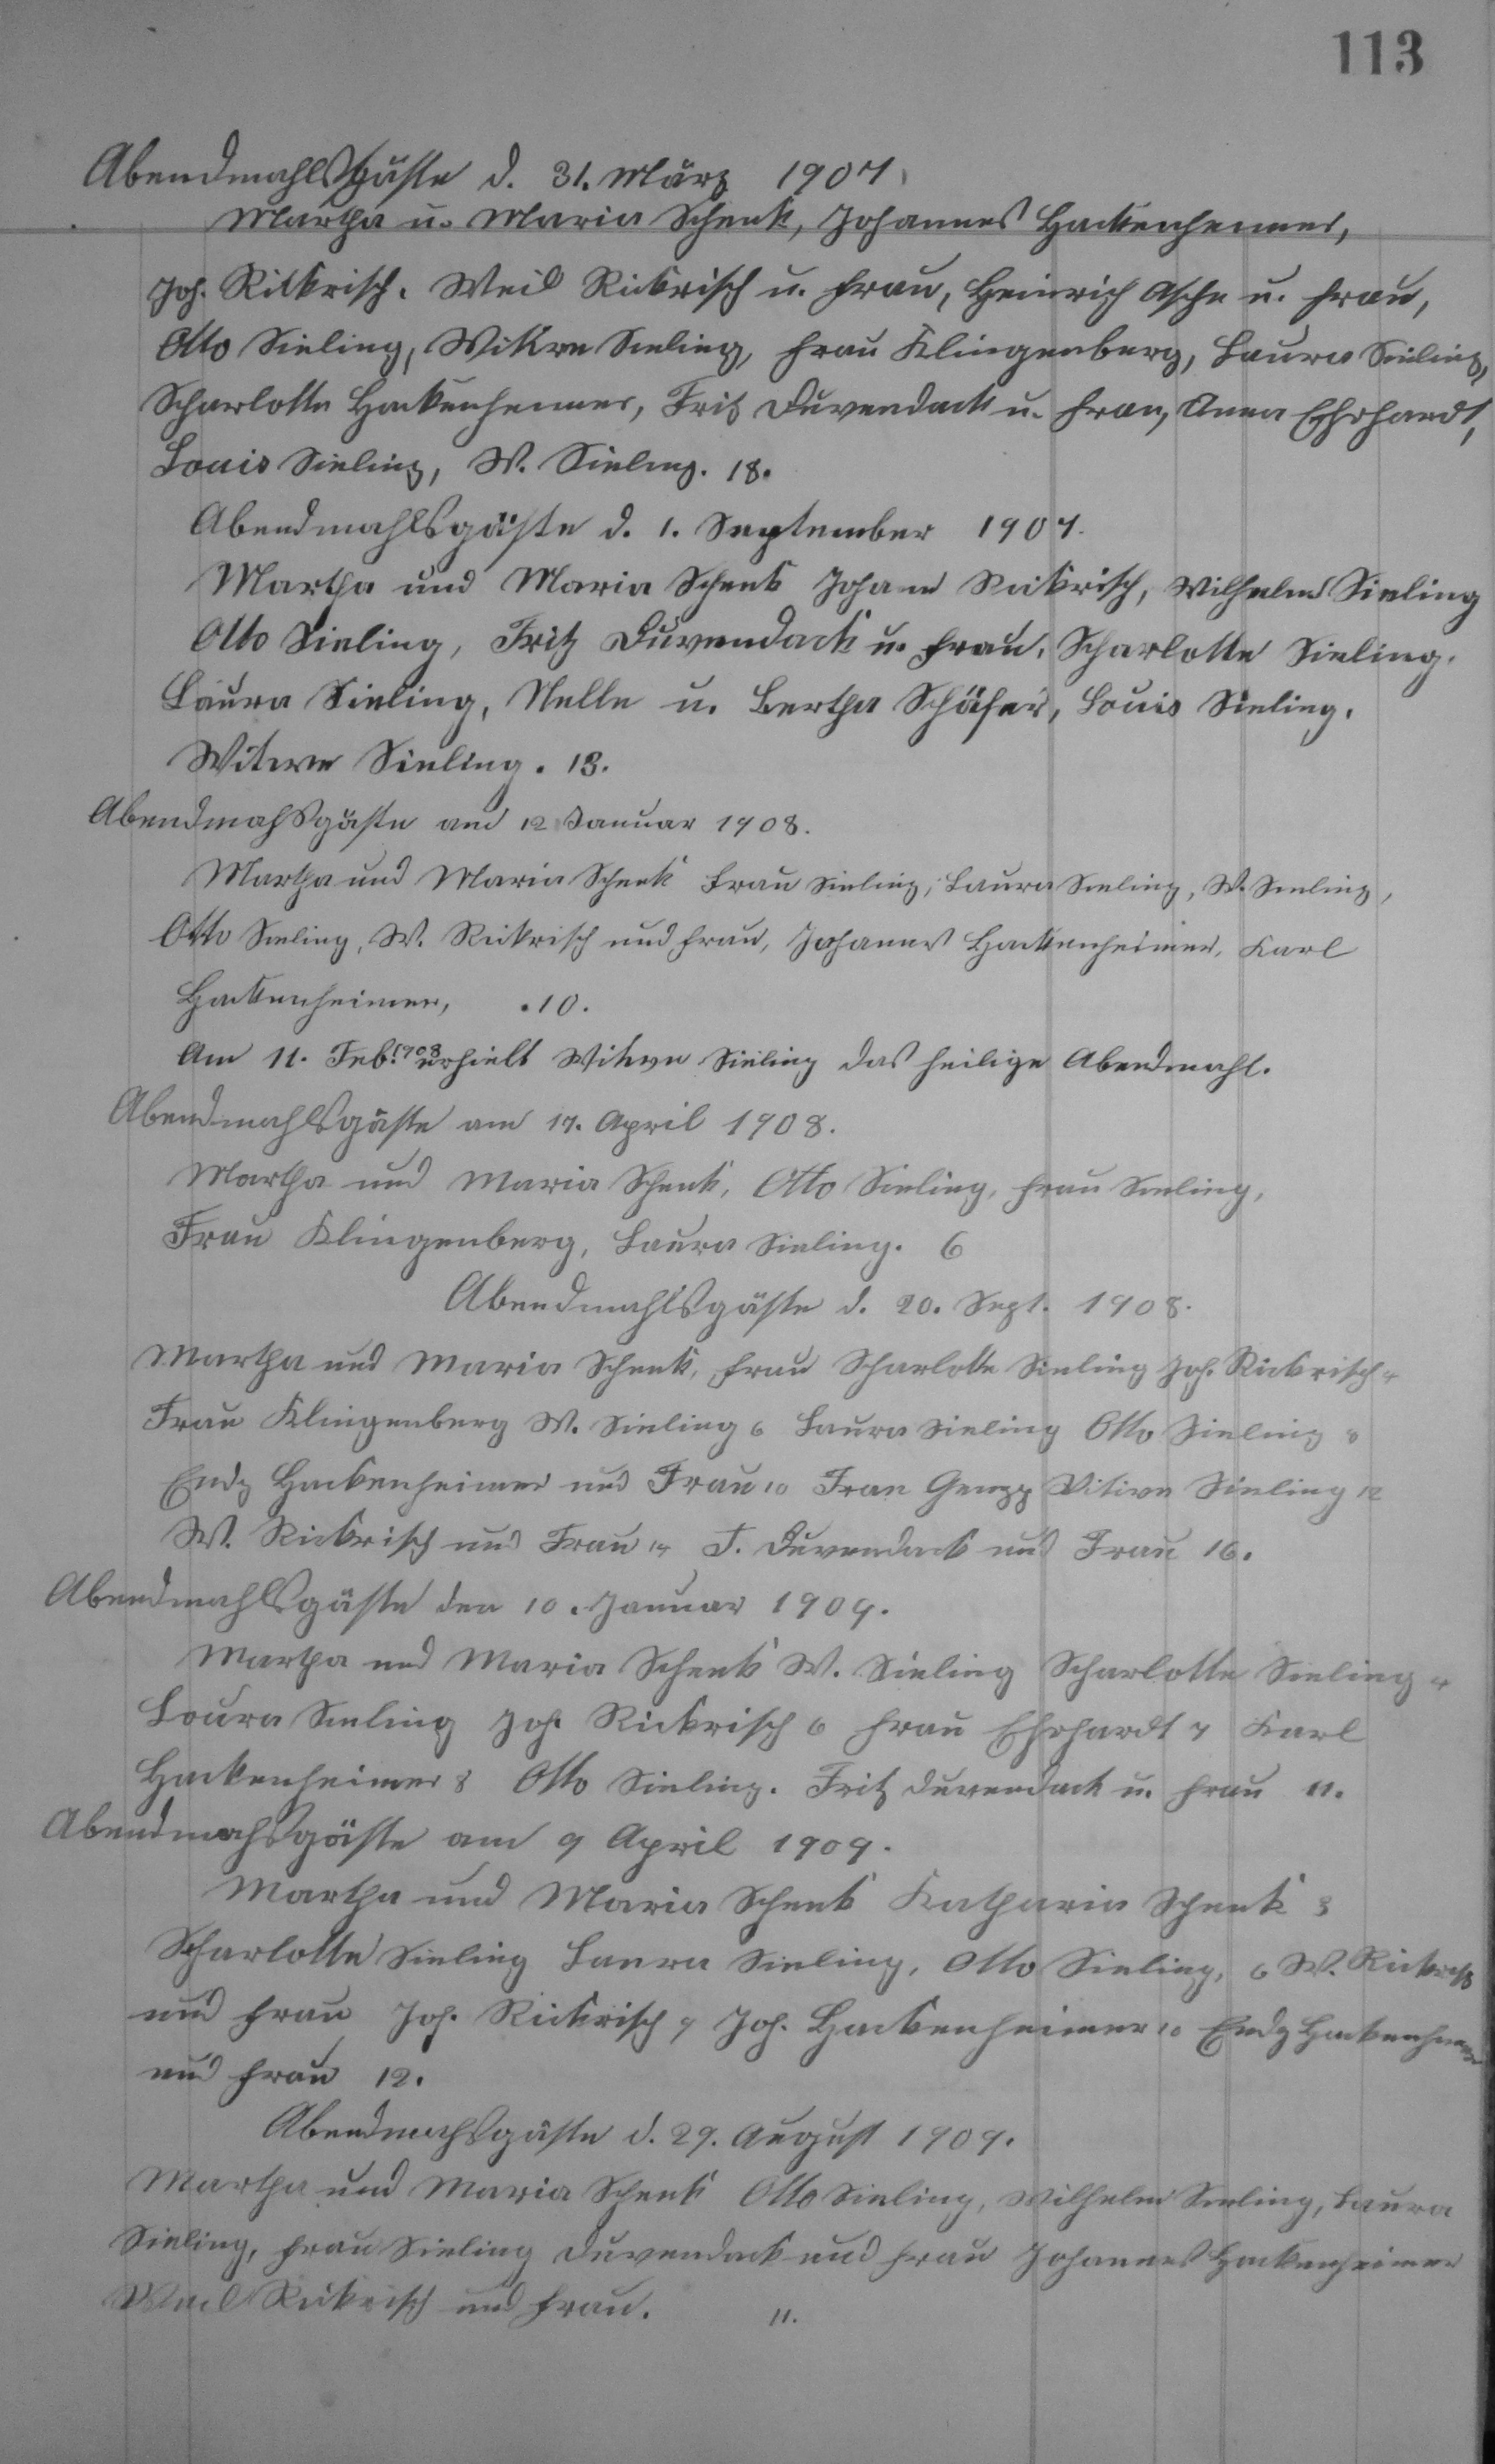 113
Abendmahlsgäste d. 31. März 1907.
Martha u. Maria Schenk, Johannes Hackenheimer,
Joh. Rickrisch. Weil Rickrisch u. Frau, Heinrich Asche u. Frau,
Otto Sieling, Witwe Sieling, Frau Klingenberg, Laura Sieling,
Scharlotte Hackenheimer, Fritz Duvendack u. Frau, Anna Ehrhardt,
Louis Sieling, W. Sieling. 18.
Abendmahlsgäste d. 1. September 1907.
Martha und Maria Schenk Johann Rickrisch, Wilhelm Sieling
Otto Sieling, Fritz Duvendack u. Frau, Scharlotte Sieling.
Laura Sieling, Nelle u. Bertha Schäfer, Louis Sieling.
Witwe Sieling. 13.
Abendmahsgäste am 12 Januar 1908.
Martha und Maria Schenk Frau Sieling, Laura Sieling, W. Sieling,
Otto Sieling, W. Rickrisch und Frau, Johannes Hackenheimer, Karl
Hackenheimer, .10.
Am 11. Feb. 1908 erhielt Witwe Sieling das heilige Abendmahl.
Abendmahlsgäste am 17. April 1908.
Martha und Maria Schenk, Otto Sieling, Frau Sieling,
Frau Klingenberg, Laura Sieling. 6
Abendmahlsgäste d. 20. Sept. 1908.
Martha und Maria Schenk, Frau Scharlotte Sieling Joh. Rickrisch 4
Frau Klingenberg W. Sieling 6 Laura Sieling Otto Sieling 8
Hackenheimer und Frau 10 Frau Witwe Sieling 12
W. Rickrisch und Frau 14 F. Duvendack und Frau 16.
Abendmahlsgäste den 10. Januar 1909.
Martha und Maria Schenk W. Sieling Scharlotte Sieling 4
Loura Sieling Joh. Rickrisch 6 Frau Ehrhardt 7 Karl
Hackenheimer 8 Otto Sieling. Fritz Duvendack u. Frau 11.
Abendmahsgäste am 9 April 1909.
Martha und Maria Schenk Katharia Schenk 3
Scharlotte Sieling Laura Sieling, Otto Sieling, 6 W. Rickrisch
und Frau Joh. Rickrisch 9 Joh. Hackenheimer 10 Hackenheimer
und Frau 12.
Abendmahsgäste d. 29. August 1909.
Martha und Maria Schenk Otto Sieling, Wilhelm Sieling, Laura
Sieling, Frau Sieling Duvendack und Frau Johannes Hackenheimer
Weil Rickrisch und Frau. 11.